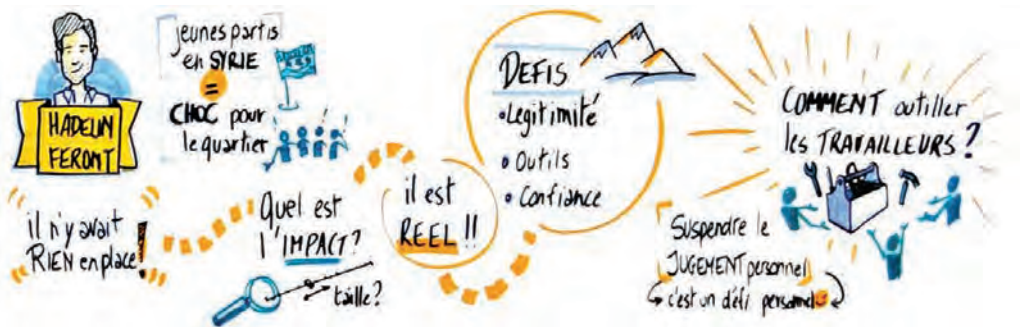 HADELIN
FERONT
jeunes partis
en SYRIE
=
CHOC pour
le quartier
il n'y avait
RIEN en place !
Quel est
l'IMPACT ?
taille ?
il est
REEL !!
DEFIS
• Légitimité
• Outils
• Confiance
COMMENT outiller
les TRAVAILLEURS ?
Suspendre le
JUGEMENT personnel
c'est un défi personnel